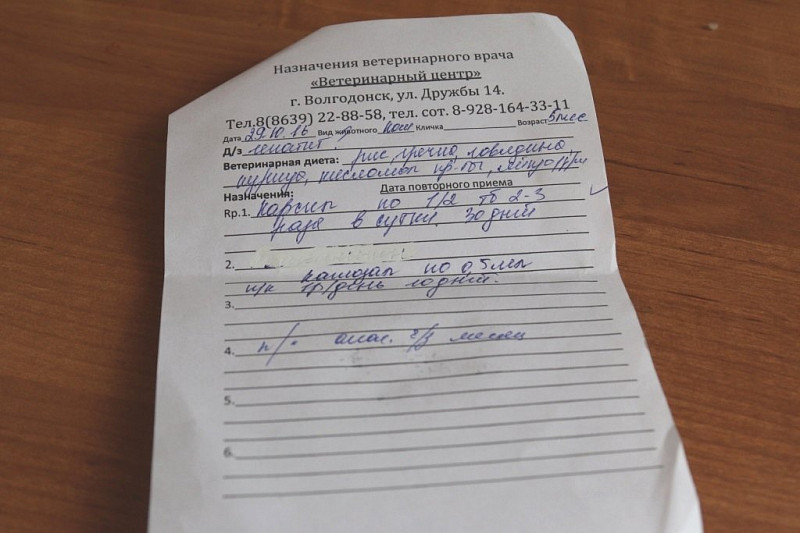 Назначения ветеринарного врача
«Ветеринарный центр»
г. Волгодонск, ул. Дружбы 14.
Тел.8(8639) 22-88-58, тел. сот. 8-928-164-33-11
Дата 29.10.16 Вид животного кош Кличка Возраст 5 мес
Д/з гепатит
Ветеринарная диета: рис, греча, говядина,
курица, кисломол пр-ты,
Назначения: Дата повторного приема
Rp.1. Карсил по 1/2 тб 2-3
раза в сутки. 30 дней
2.
катозал по 0,5 мл
п/к 1р/день 10 дней.
3.
4. п/. анал. ч/з месяц
5.
6.